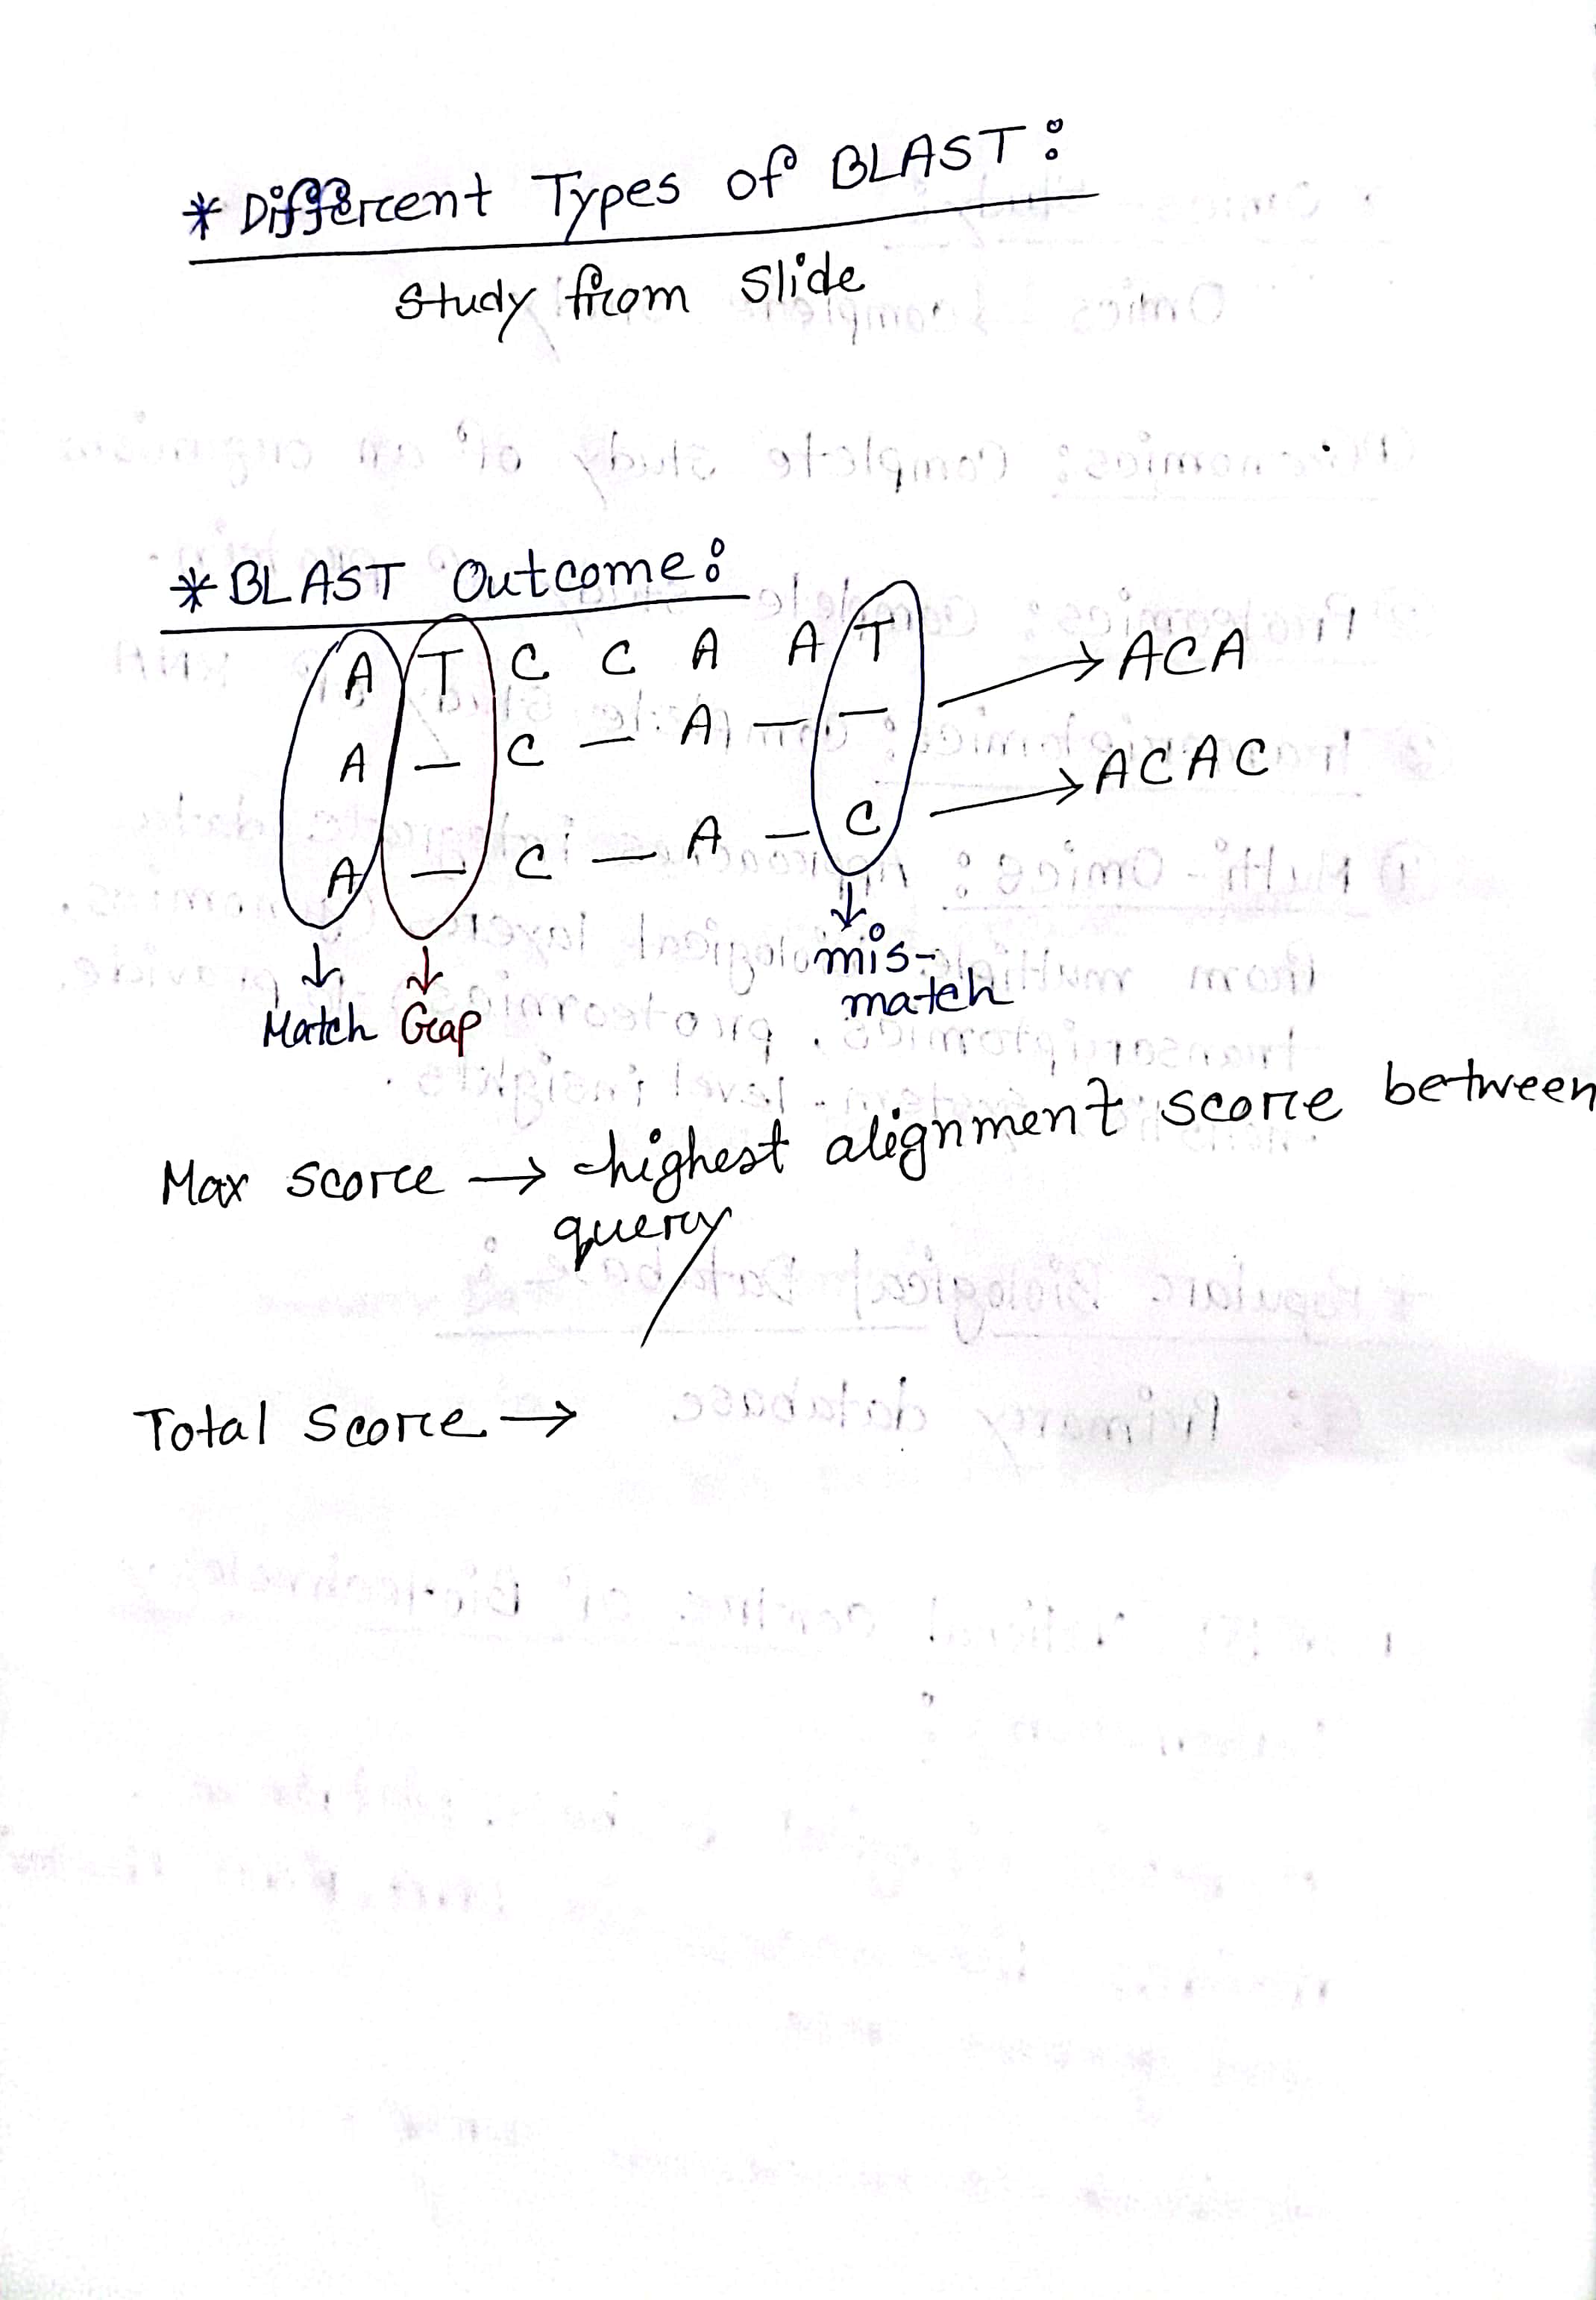 * Different Types of BLAST:
Study from Slide
* BLAST Outcome:
A T C C A A T
A – C – A – – → ACA
A – C – A – C → ACAC
↓ Match ↓ Gap ↓ mis-
match
Max Score → highest alignment score between
query
Total Score →